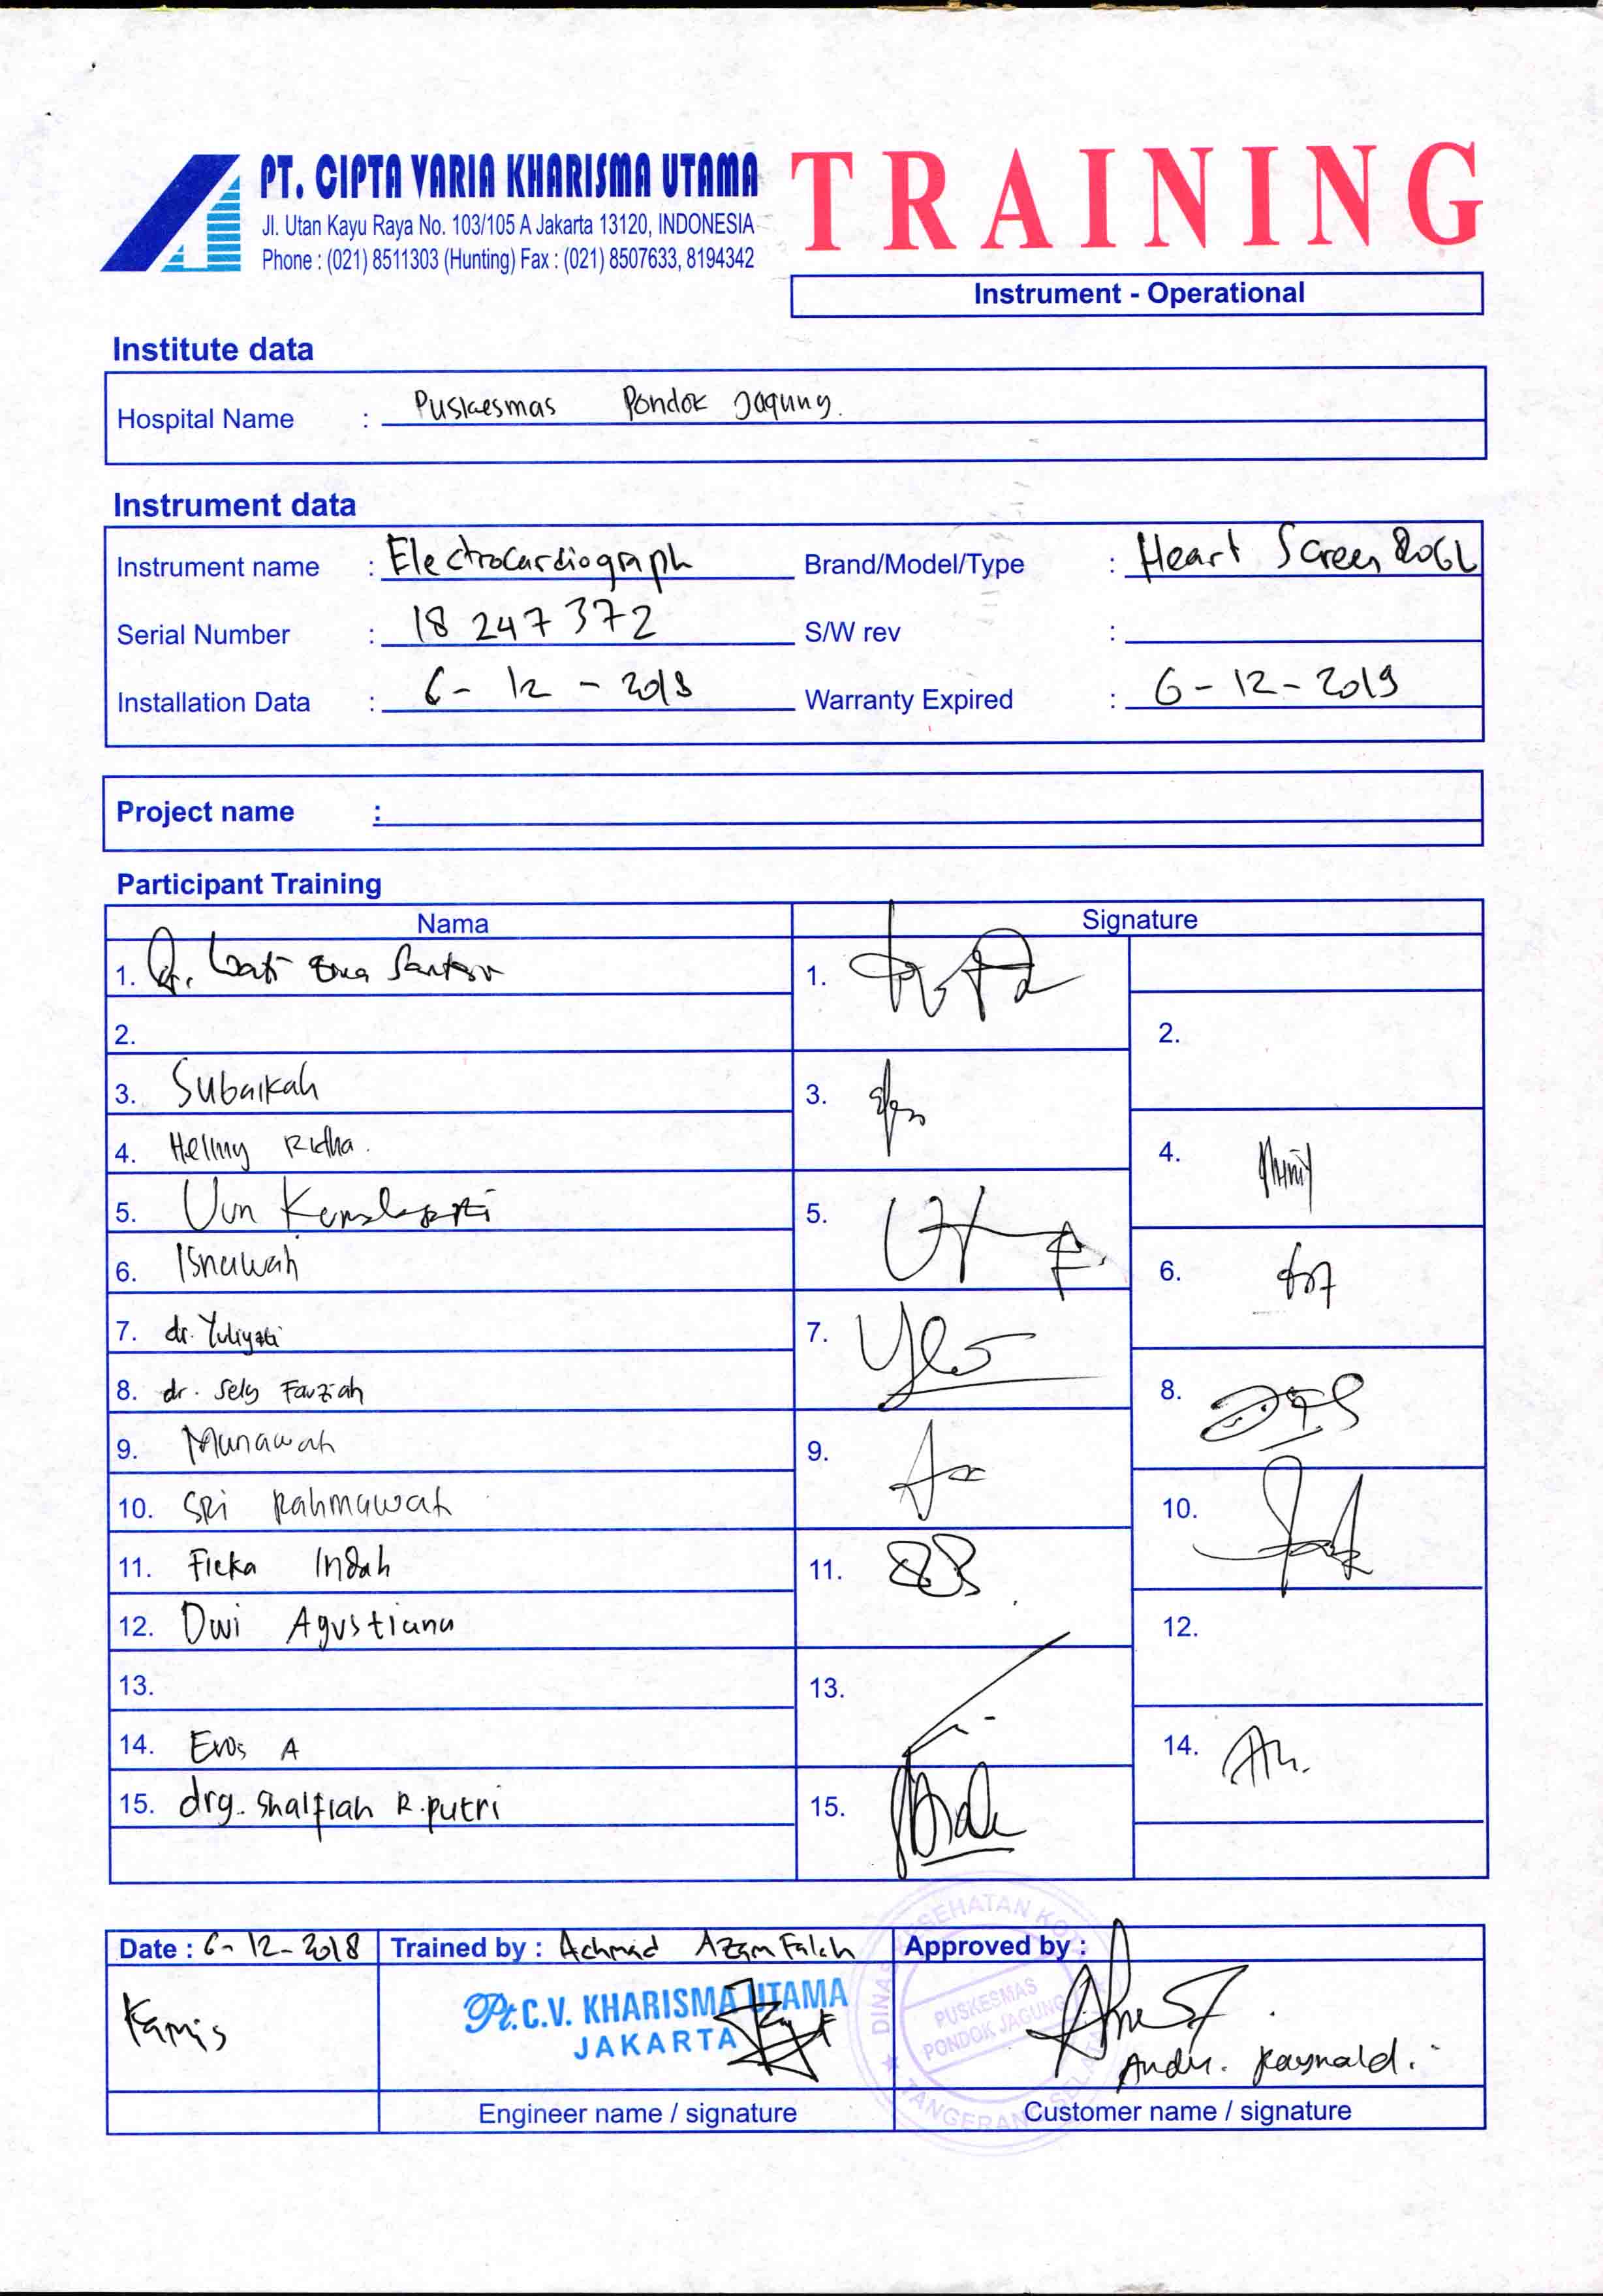 PT. CIPTA VARIA KHARISMA UTAMA
Jl. Utan Kayu Raya No. 103/105 A Jakarta 13120, INDONESIA
Phone : (021) 8511303 (Hunting) Fax : (021) 8507633, 8194342
TRAINING
Instrument - Operational
Institute data
Hospital Name : Puskesmas Pondok Jagung.
Instrument data
Instrument name : Electrocardiograph Brand/Model/Type : Heart Screen
Serial Number : 18 247 372 S/W rev :
Installation Data : 6 - 12 - 2018 Warranty Expired : 6 - 12 - 2019
Project name :
Participant Training
Nama Signature
1. 1.
2. 2.
3. Subaikah 3.
4. Helmy Ridha. 4.
5. 5.
6. Isnawah 6.
7. dr. Yuliyati 7.
8. dr. Sely Fauziah 8.
9. Munawah 9.
10. SRi Rahmawah 10.
11. Ficka Indah 11.
12. Dwi Agustiana 12.
13. 13.
14. A 14.
15. drg. Shalfiah R. putri 15.
Date : 6 - 12 - 2018 Trained by : Achmad Azam Falah Approved by :
Kamis
Pt. C.V. KHARISMA UTAMA
JAKARTA
DINAS KESEHATAN
PUSKESMAS
PONDOK JAGUNG
TANGERANG SELATAN
Engineer name / signature Customer name / signature